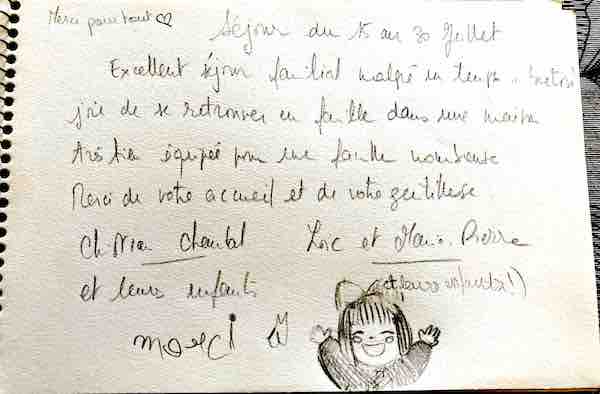 Merci pour tout
Séjour du 15 au 30 Juillet
Excellent séjour familial malgré un temps "breton"
joie de se retrouver en famille dans une maison
très bien équipée pour une famille nombreuse
Merci de votre accueil et de votre gentillesse.
Christian Chantal Loïc et Marie-Pierre
et leurs enfants (et leurs enfants!)
merci